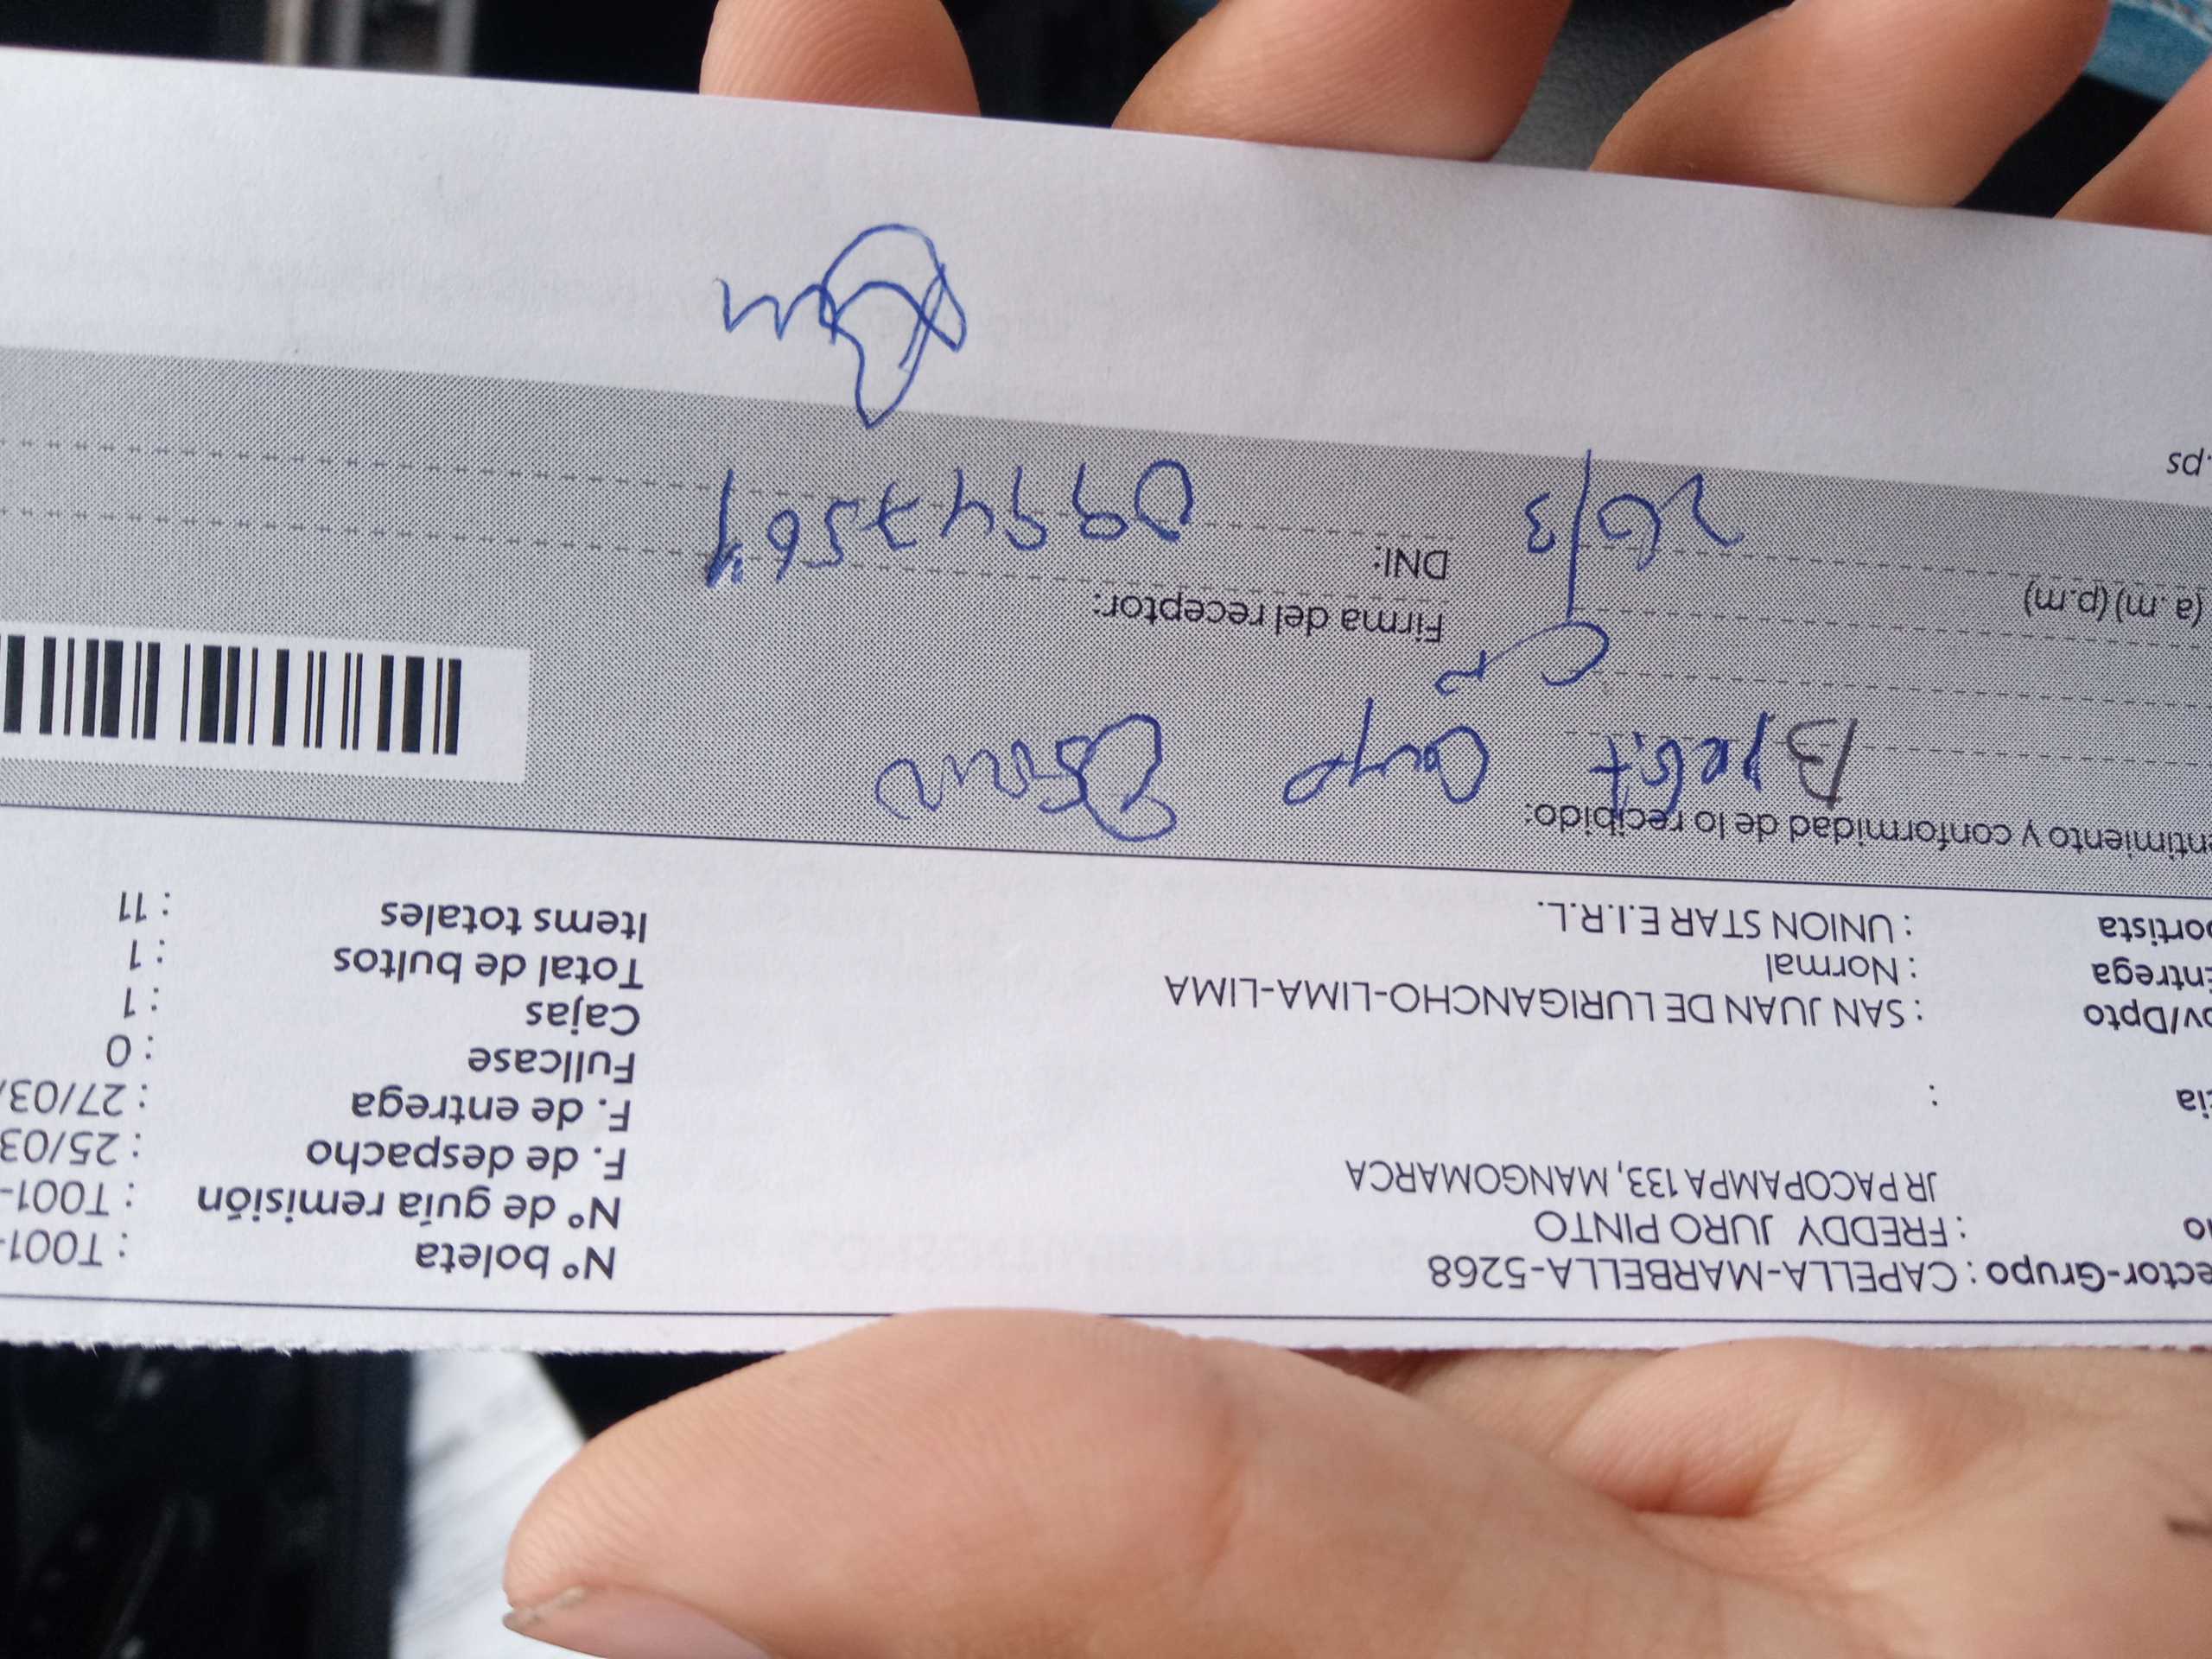 ector-Grupo : CAPELLA-MARBELLA-5268
: FREDDY JURO PINTO
JR PACOPAMPA 133, MANGOMARCA
cia :
ov/Dpto : SAN JUAN DE LURIGANCHO-LIMA-LIMA
Entrega : Normal
portista : UNION STAR E.I.R.L.
Nº boleta : T001-
Nº de guía remisión : T001-
F. de despacho : 25/03
F. de entrega : 27/03/
Fullcase : 0
Cajas : 1
Total de bultos : 1
Items totales : 11
entimiento y conformidad de lo recibido:
Firma del receptor:
(a.m) (p.m) 26/3
DNI:
.ps